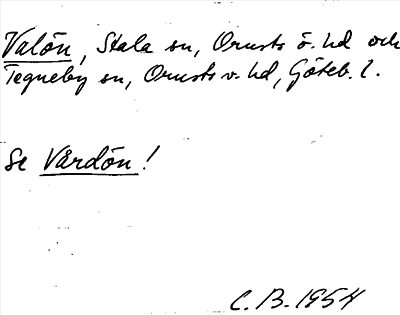 Valön, Stala sn, Orusts ö. hd och
Tegneby sn, Orusts v. hd, Göteb. l.
Se Vårdön!
C. B. 1954